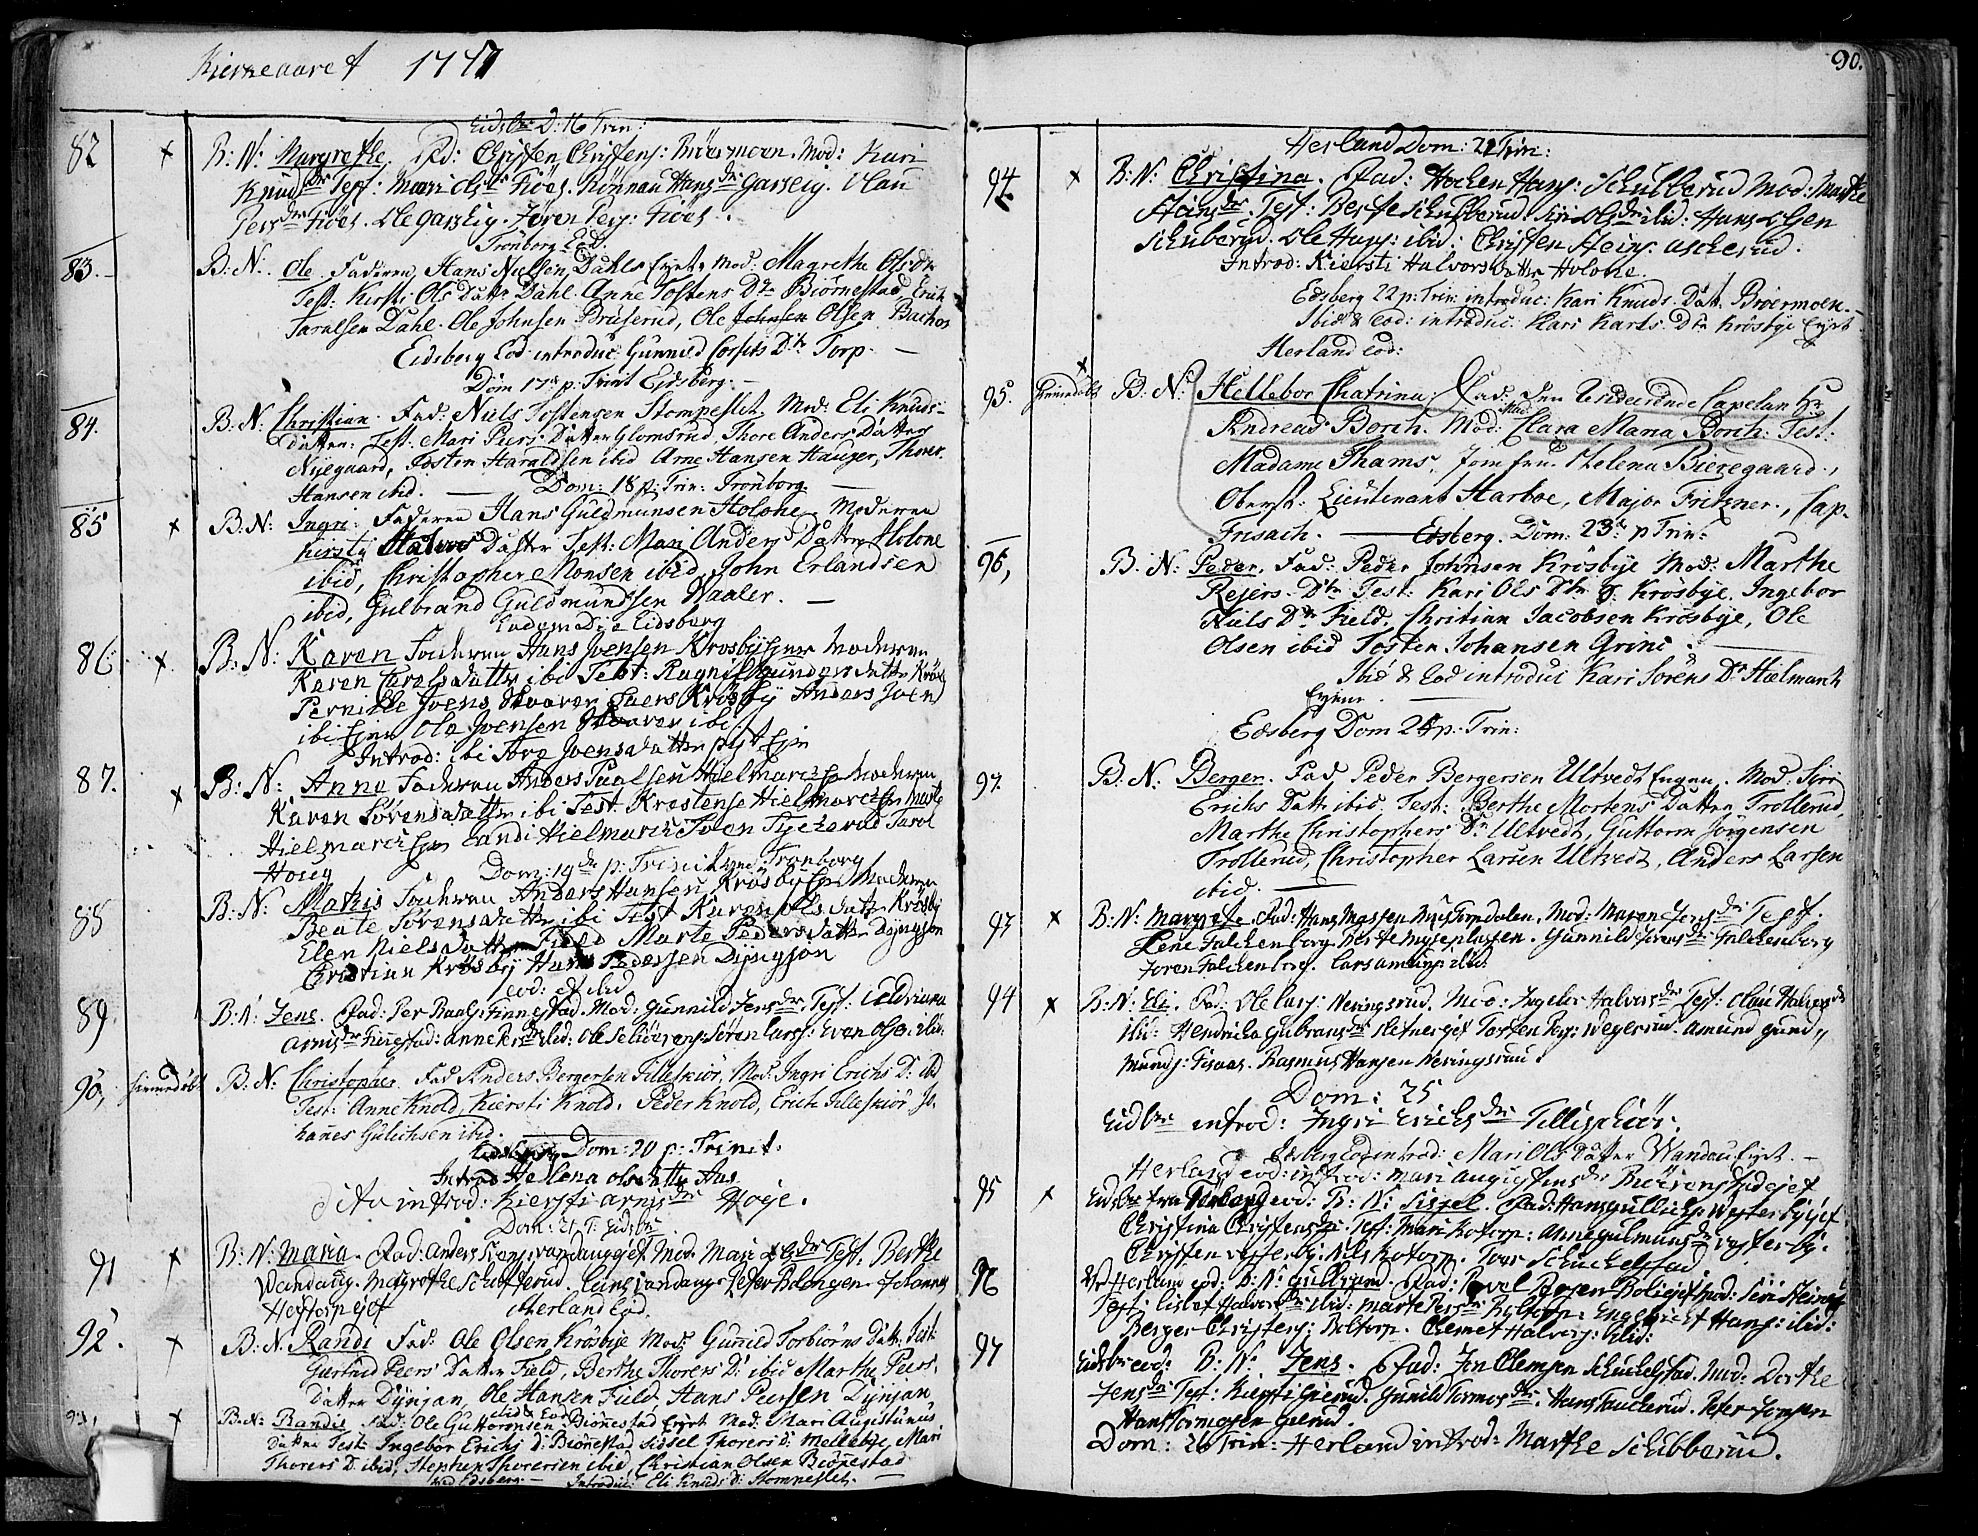 Kierkeaaret 1777
Eidsbr D: 16 Trin:
82 x B: N: Margrethe. Fad: Christen Christens: Bröermoen. Mod: Kari
Knudsdr Test: Mari Olsdr Fiöes. Rönnau Hansdr Garseig. Olau
Persdr Fiöes. Ole Garseig. Jören Pers: Fiöes.
Trönborg Eod.
83. B. N. Ole. Faderen, Hans Nielsen Dahls Eyet, Mod: Magrethe Olsdr
Test: Kirsti Ols Datter Dahl. Anne Tostens Dtr Biörnestad Erich
Taralsen Dahl. Ole Johnsen Præserud, Ole Johnsen Olsen Backos
Eidsberg Eod introduc: Gunnild Dtr Torp. —
Dom 17de p: Trinit Eidsberg. —
84. B. N: Christian. Fad: Niels Tostensen Stompeslet. Mod: Eli Knuds-
datter: Test: Mari Piers Datter Glomsrud, Thore Anders Datter
Nyegaard, Tosten Haraldsen ibid Arne Hansen Hauger, Thorer
Hansen ibid. — Dom: 18 p: Trin: Trönborg —
85 x B. N: Ingri. Faderen Hans Guldmunsen Holone. Moderen
Kirsty Halvors Datter Test: Mari Anders Datter Holone
ibid, Christopher Monsen ibid, John Erlandsen
ibid, Gulbrand Guldmundsen Waaler. —
Eodemdie Eidsberg
86 x B. N: Karen Faderen Hans Joensen Krosby Ejer Moderen
Karen Taralsdatter ibi Test: Ragnild Gundersdatter Krös
Pernille Joens Skaaren Krosby Anders Joens
ibi Ejer Ola Joensen Skaaren ibi
Introd: ibi Joensdatter
87. x B: N: Anne Faderen Anders Paalsen Hielmarck Ejer Moderen
Karen Sörensdatter ibi Test Krestense Hielmarck Ejer Marte
Hielmarck Ejer Randi Hielmarck Joen Tarol
Hoieg Dom: 19de p: Trinit Trönborg
88 B: N: Mathis Faderen Anders Hansen Krösby Ejer Moderen
Beate Sörensdatter ibi Test Karen Olsdatter Krösby
Elen Nielsdatter Field Marte Pedersdatter Dÿngjon
Christian Krösby Hans Pedersen Dÿngjon
eod: et ibid
89. B: N: Jens. Fad: Per Paals: Finnestad. Mod: Gunnild Jensdr. Test:
Arnisdr Finnestad: Anne Persdr ibid: Ole Sören Lars: Even Olsen ibid.
90, hiemedöbt B: N: Christopher. Fad Anders Bergersen Tilleskiör, Mod: Ingri Erichs D: ibd
Test: Anne Knold, Kiersti Knold. Peder Knold, Erich Tilleskiör Jo-
hanes Gulichsen ibid.
Eidsberg Dom: 20 p: Trinit.
Introd Helena Olsdatter Aas
Dito introd: Kiersti Arnisdr Höje.
Dom: 21 T: Eidsbr
91 x B: N: Maria. Fad: Anders Wandaugejet Mod: Mari Test: Berthe
Wandaug. Magrethe Schofterud. Lars Wandaug Peter Johannes
Hestorpejet Herland Eod.
92. x B. N. Randi Fad: Ole Olsen Krösbye Mod: Gunild Torbiörns Datr. Test:
Giertrud Peers Datter Field, Berthe Thorers D: ibid Marthe Peers
Datter Dynjan, Ole Hansen Field, Hans Piersen Dynjan
ibid & Eod
93. x B. N: Randi Fad: Ole Guttormsen Biönnestad Eyet Mod: Mari Augistinus
Datter Test: Ingebor Erichs d: Biönnestad Sidsel Thorers d: Mellebye, Mari
Thorers D. ibid, Stephen Thorersen ibid, Christian Olsen Biönestad
Ved Edsberg. — Introduc: Eli Knuds D: Stompeslet. —
90.
Herland Dom: 21 Trin:
94. x B. N: Christina. Fad: Hochen Hans: Schubberud Mod: Marthe
Steinsdr. Test: Berte Schubberud. Siri Olsdr ibid: Hans Olsen
Schuberud. Ole Hans: ibid: Christen Steins: Ascherud.
Introd: Kiersti Halvorsdatter Holone.
Edsberg 22 p: Trin: introduc: Kari Knuds. Datr. Bröermoen. —
Ibid & Eod: introduc: Kari Karls. Dtr Krösbye Eyet
Herland eod:
x
95. hiemedöbt B: N: Hellebor Chatrina, Fad: Den Resideerende Capelan Hr
Andreas Borch. Mod: Mad: Clara Maria Borch: Test:
Madame Thams, Jomfru Helena Bieregaard,
Oberst: Lieutenant Harboe, Major Fritzner., Cap-
Frisach. — Edsberg. Dom: 23de p Trin:
96, B. N: Peder. Fad: Peder Johnsen Krösbye Mod: Marthe
Rejers. Dtr Test: Kari Ols Dtr Krösbye, Ingebor
Niels Dtr Field, Christian Jacobsen Krösbye, Ole
Olsen ibid Tosten Johansen Grini. —
Ibid & Eod introduc Kari Sörens Dr Hielmark
Eyene. —
Edsberg Dom 24 p: Trin:
97. B. N: Berger. Fad Peder Bergersen Ultvedt Eygen. Mod: Siri
Erichs Datr ibid. Test: Berthe Mortens Datter Trollerud,
Marthe Christophers Dr Ultvedt, Guttorm Jörgensen
Trollerud, Christopher Larsen Ultvedt, Anders Larsen
ibid. —
93 x B: N: Margrete. Fad: Hans Torpdalen. Mod: Maren Jensdr Test:
Lene Falchenborg. Berte Myseplassen. Gunnild Jörensdr Falchenborg
Joren Falchenborg. Lars ibid.
94 x B: N: Eli. Fad: Ole Lars: Neringsrud. Mod: Ingebor Halvorsdr Test: Olau Halvorsdr
ibid: Hendricka Gulbransdr Tosten Pers: Wegerud. Amund Gund„
munds: Tisaas. Rasmus Hansen Neringsruu.
Dom: 25
Eidbr introd: Ingri Erichsdr Tillischiör.
Edsberg Eod introd: Mari Ols Datter Wandau Eyet. —
Herland eod: introd: Mari Augustinsdr
95 x Eidsbr eod: B: N: Sissel. Fad: Hans Gullichs: Westerbyejet
Christina Christensdr. Test: Mari Kotorp: Anne Gulmunsdr Vesterby.
Christen Vesterby. Nils Kotorp. Joar Schuchelstad.
96 Ved Herland eod: B: N: Gullbrand. Fad: Povel Boliejet Mod: Siri Steins
Test: Lisbet Halvorsdr ibid: Marte Persdr Boltorp. Engebricht Hans: ibid:
Berger Christens: Boltorp. Clemet Halvors: ibid:
97 Eidsbr eod: B: N: Jens. Fad: Jon Clemsen Schuchelstad. Mod: Dorthe
Jensdr Test: Kirsti Gierud. Gunild Tormosdr. Hans Faucherud. Peter Jonsen
Hans Tormosen Gierud.
Dom: 26 Trin: Herland introd: Marthe Schubberud.